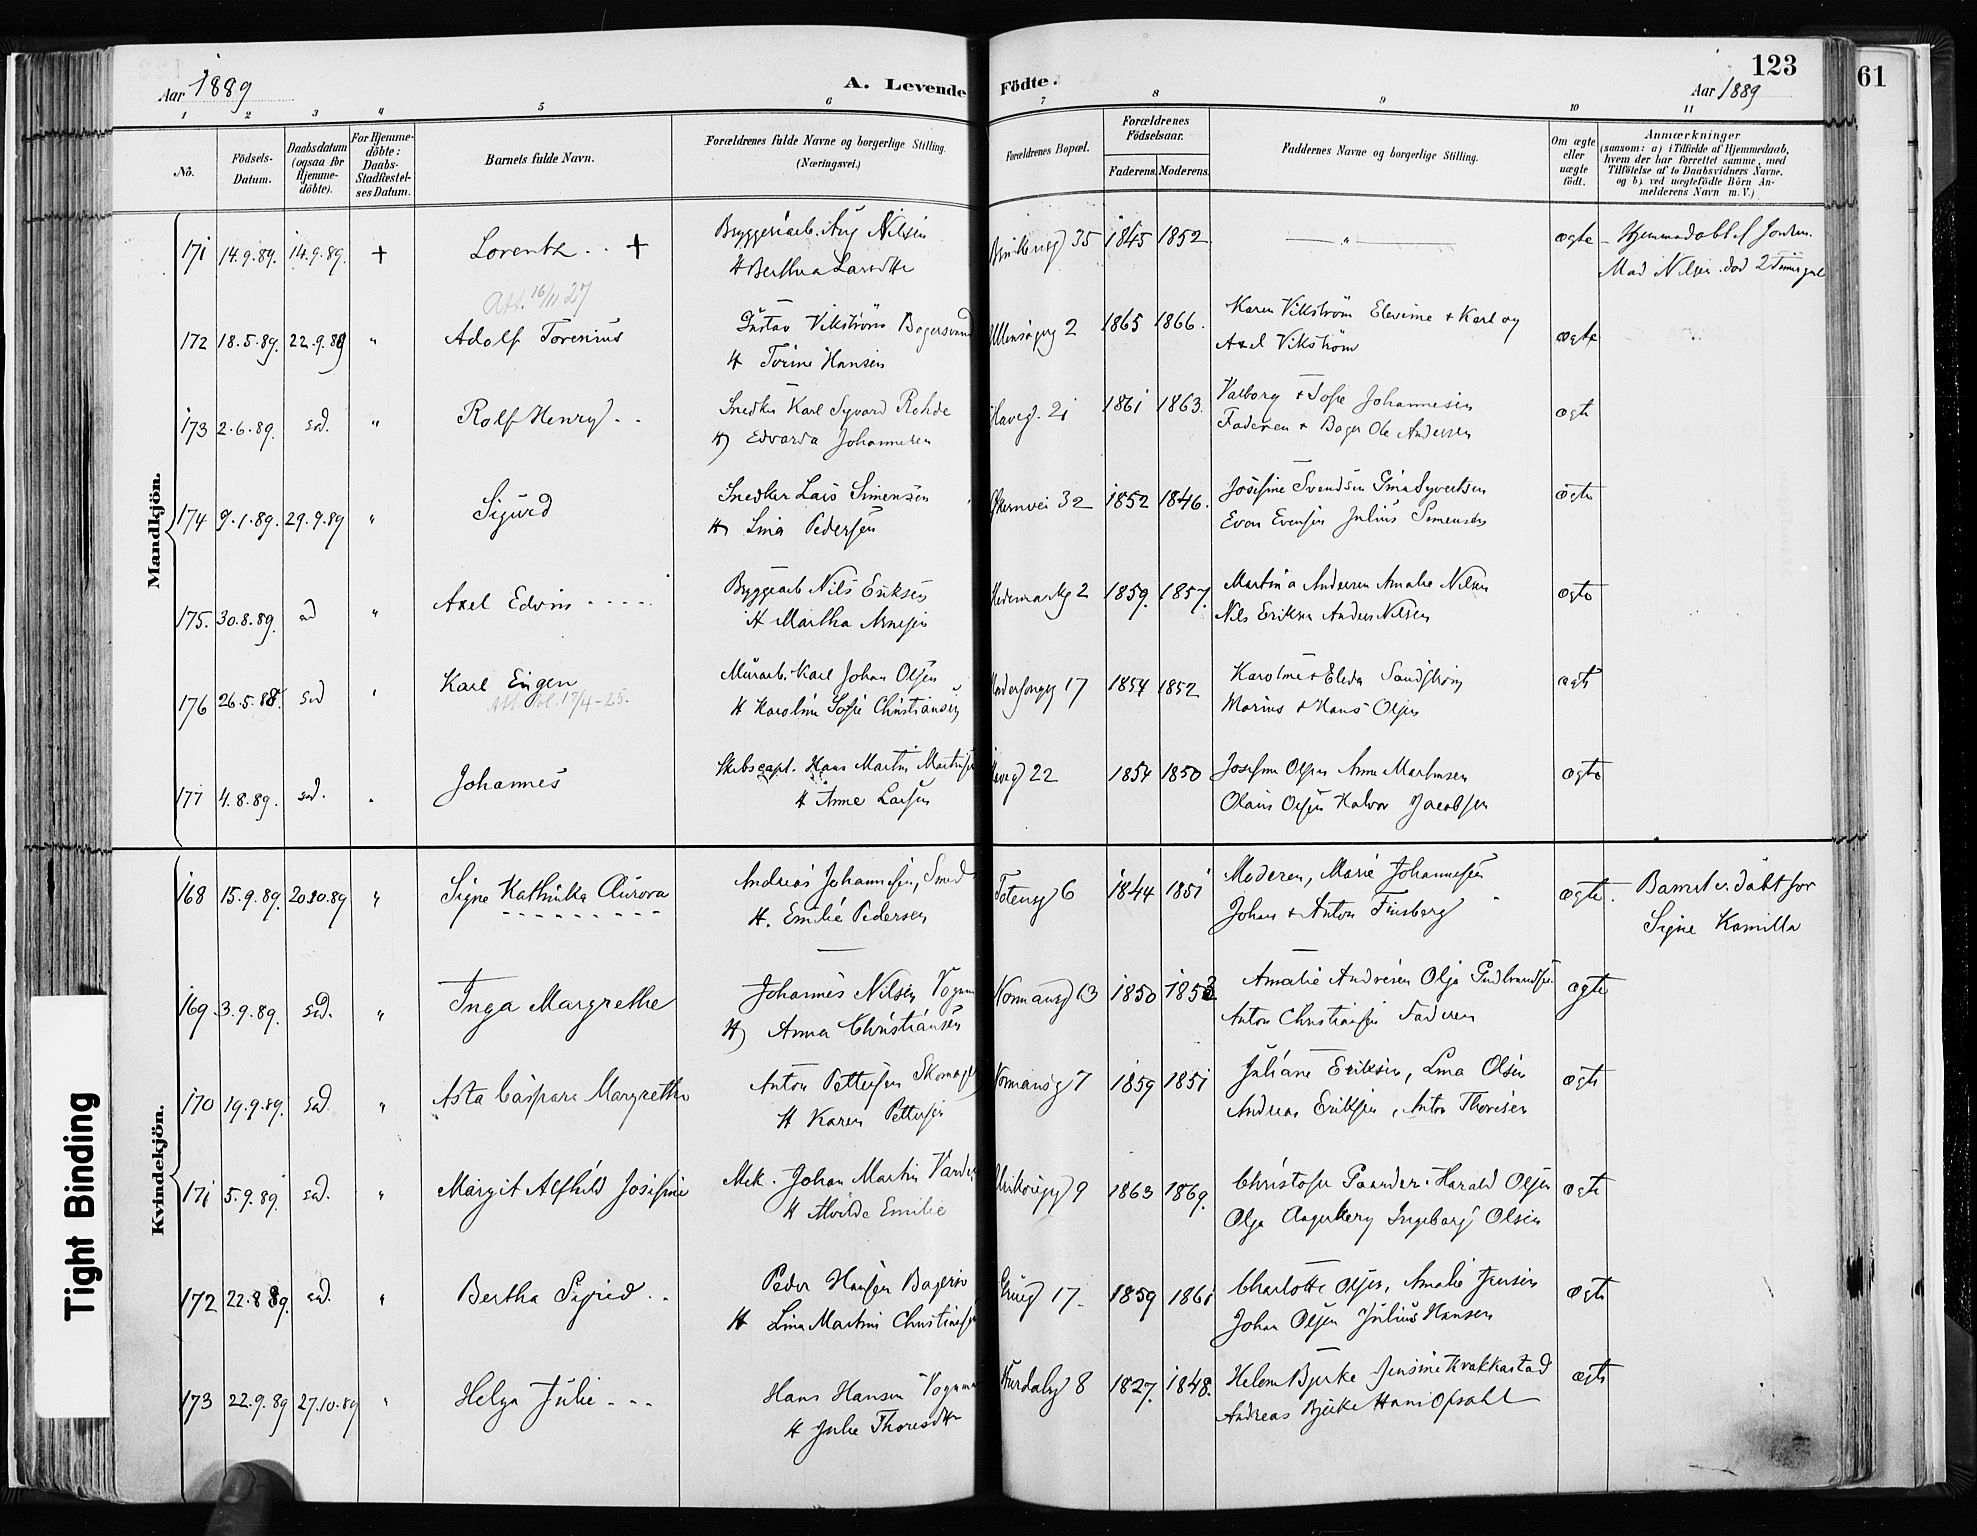 Aar 1889
A. Levende Födte.
123
Aar 1889
61
1 2 3 4 5 6 7 8 9 10 11
No.
Födsels-Datum.
Daabsdatum (ogsaa for Hjemme-döbte).
For Hjemme-döbte: Daabs-Stadfæstel-ses Datum.
Barnets fulde Navn.
Forældrenes fulde Navne og borgerlige Stilling.
(Næringsvei.)
Forældrenes Bopæl.
Forældrenes Födselsaar.
Faderens. Moderens.
Faddernes Navne og borgerlige Stilling.
Om ægte eller uægte födt.
Anmærkninger
(saasom: a) i Tilfælde af Hjemmedaab,
hvem der har forrettet samme, med
Tilföielse af to Daabsvidners Navne.
og b) ved uægtefödte Börn An-
melderens Navn m. V.)
Mandkjön.
171 14.9.89. 14.9.89. + Lorentz . . + Bryggeriarb. Aug Nilsen 35 1845 1852 — " — ægte - Hjemmedöbt af
& Berthea Larsdtr Nilsen. død 2 Timer gml
Att. 16/11 27
172 18.5.89. 22.9.89 " Adolf Torenius Gustav Vikström Bagersvend 2 1865 1866. Karen Vikström Elevine & Karl og ægte
& Torine Hansen Axel Vikström
173 2.6.89. sd. " Rolf Henry . . Snedker Karl Syvard Rohde Haveg. 21 1861 1863. Valborg & Sofie Johannesen ægte
& Edvarda Johannesen Faderen & Bager Ole Andersen
174 9.1.89. 29.9.89 " Sigurd Snedker Lars Simensen Økernvei 32 1852 1846. Josefine Svendsen Gina Syvertsen ægte
& Lina Pedersen Even Evensen Julius Simensen
175. 30.8.89. sd " Axel Edvin - - - - Bryggeiarb Nils Eriksen Hedemarkg 2 1859. 1857. Martina Andersen Amalie Nilsen ægte
& Martha Arnesen Nils Eriksen Anders Nilsen
176 26.5.88. sd " Karl Eugen Murarb. Karl Johan Olsen 17 1854 1852 Karoline & Elida Sandström ægte
Att. 17/4-25.
& Karoline Sofie Christiansen Marius & Hans Olsen
177 4.8.89. sd. " Johannes Skibscapt. Hans Martin Martinsen 22 1854 1850 Josefine Olsen Anne Martinsen ægte
& Anne Larsen Olaus Olsen Halvor Jacobsen
Kvindekjön.
168 15.9.89. 20.10.89 " Signe Kathinka Aurora Andreas Johannesen, Smed Totensg 6 1844 1851 Moderen, Marie Johannesen ægte. Barnet er döbt for
& Emilie Pedersen Johan & Anton Finsberg Signe Kamilla
169 3.9.89. sd. " Inga Margrethe Johannes Nilsen Normansg 13 1850 1852 Amalie Andresen Olga Gudbrandsen ægte
& Anna Christiansen Anton Christiansen Faderen
170 19.9.89. sd. " Asta Caspara Margrethe Anton Pettersen Skomager Normansg 7 1859 1851 Juliane Eriksen, Lina Olsen ægte
& Karen Pettersen Andreas Eriksen, Anton Thoresen
171 5.9.89. sd. " Margit Alfhild Josefine Mek. Johan Martin 9 1863 1869. Christofer Harald Olsen ægte
& Alvilde Emilie Olga Aagerberg Ingeborg Olsen
172 22.8 89. sd. " Bertha Sigrid . . Peder Hansen Grueg 17. 1859 1861 Charlotte Olsen, Amalie Jensen ægte
& Lina Martine Christiansen Johan Olsen Julius Hansen
173 22.9.89 27.10.89 " Helga Julie - - - Hans Hansen Hurdalsg 8 1827. 1848. Helene Bjerke Jensine Krakkastad ægte
& Julie Thoresdtr Andreas Bjerke Hans Opsahl
Tight Binding